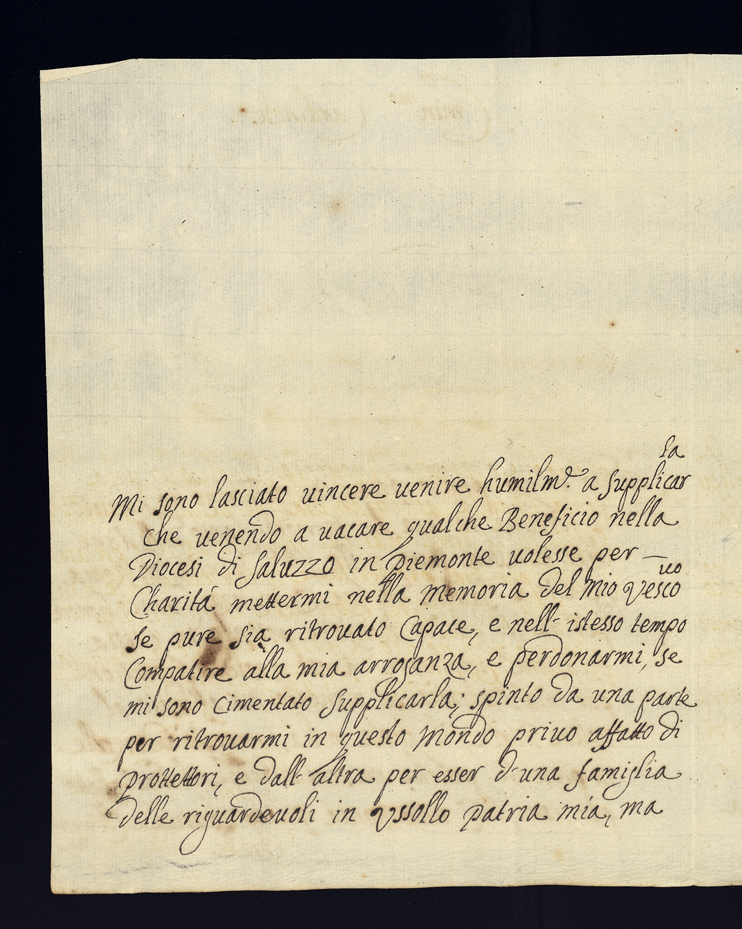 Mi sono lasciato vincere venire humilm.e a supplicarla
che venendo a vacare qualche Beneficio nella
Diocesi di Saluzzo in Piemonte volesse per
Charitá mettermi nella memoria del mio Vescovo
se pure sia ritrovato Capace, e nell' istesso tempo
Compatire alla mia arroganza, e perdonarmi, se
mi sono Cimentato supplicarla; spinto da una parte
per ritrovarmi in questo Mondo privo affatto di
protettori, e dall' altra per esser d'una famiglia
delle riguardevoli in Ussollo Patria mia, ma